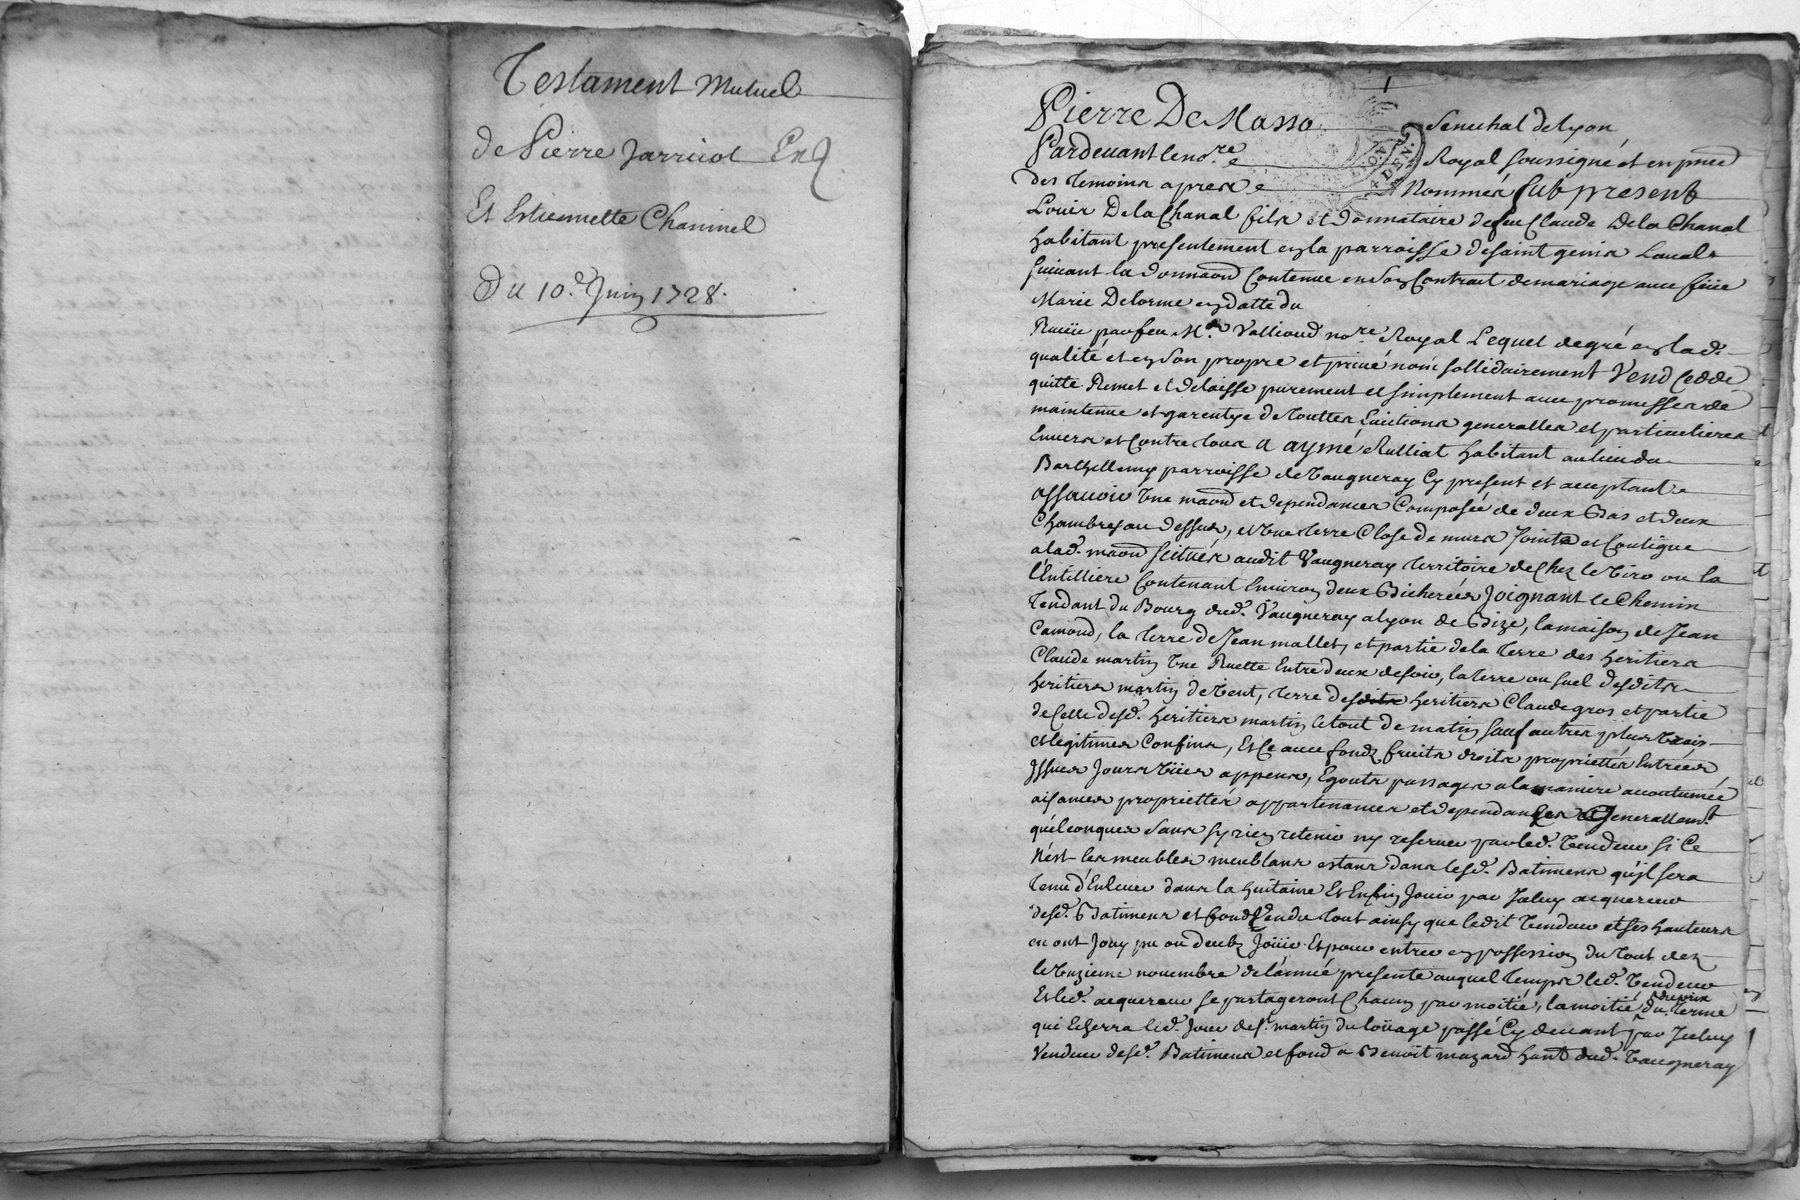 Testament Mutuel
de Pierre Jarricot
Et Estiennette Chaninel
Du 10.e Juin 1728.
1
Pierre De Masso Senechal de Lyon
Pardevant le no.re Royal soussigné et en pnce
des temoins apres Nommés fut present
Louis Dela Chanal fils et donnataire defeu Claude Dela Chanal
habitant presentement en la parroisse de saint genis Lavals
suivant la donnaon Contenue en son Contract de mariage avec
Marie Delorme en datte du
Receüe par feu Mre Valliond no.re Royal Lequel degré en lad.
qualité et en son propre et privé nom sollidairement Vend Cedde
quitte Remet et delaisse purement et simplement avec promesses de
maintenue et garentye de touttes Evictions generalles et particulieres
Envers et Contre tous a aymé Rulliat habitant au lieu du
Barthellemy parroisse de Vaugneray Cy present et acceptant
assavoir Une maon et dependances Composée de deux Bas et deux
Chambres au dessus, et Une terre Close de murs Jointe et Contigue
a lad. maon scituées audit Vaugneray territoire de Chez le Tiro ou la
l'Entilliere Contenant Environ deux Bicherées Joignant le Chemin
Tendant du Bourg dud. Vaugneray a lyon de Bize, la maison de Jean
Camond, la terre de Jean mallet, et partie dela terre des heritiers
Claude martin Une Ruette Entredeux de soir, la terre ou suel desdits
heritiers martin de Vent, terre des heritiers Claude gros et partie
de Celle desd. heritiers martin le tout de matin sauf autres plus Vrais
et legitimes Confins, Et Ce avec fondz fruits droits proprietés Entrées
Issues Jours Vües appens, Egouts passages a la maniere accoutumée
aisances proprietés appartenances et dependances Generallemt
quelconques sans sy rien retenir ny reserver par led. Vendeur si Ce
N'est les meubles meublans estans dans lesd. Batimens qu'il sera
tenu d'Enlever dans la huitaine Et Enfin Jouir par Iceluy acquereur
desd. Batimens et fondz Vendu tout ainsy que ledit Vendeur et ses hauteurs
en ont Jouy pu ou deubz Joüir Et pour entrer en possession du tout dez
le Onzieme novembre de l'année presente auquel temps led. Vendeur
Et led. acquereur se partageront Chacun par moitié, la moitié du prix du terme
qui Echerra led. Jour de St. martin du loüage passé Cy devant par Iceluy
Vendeur desd. Batimens et fond a Benoît mazard hant dud. Vaugneray